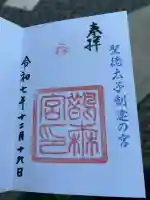 聖徳太子創建の宮
奉拝
鵲森
宮印
令和七年十二月十六日